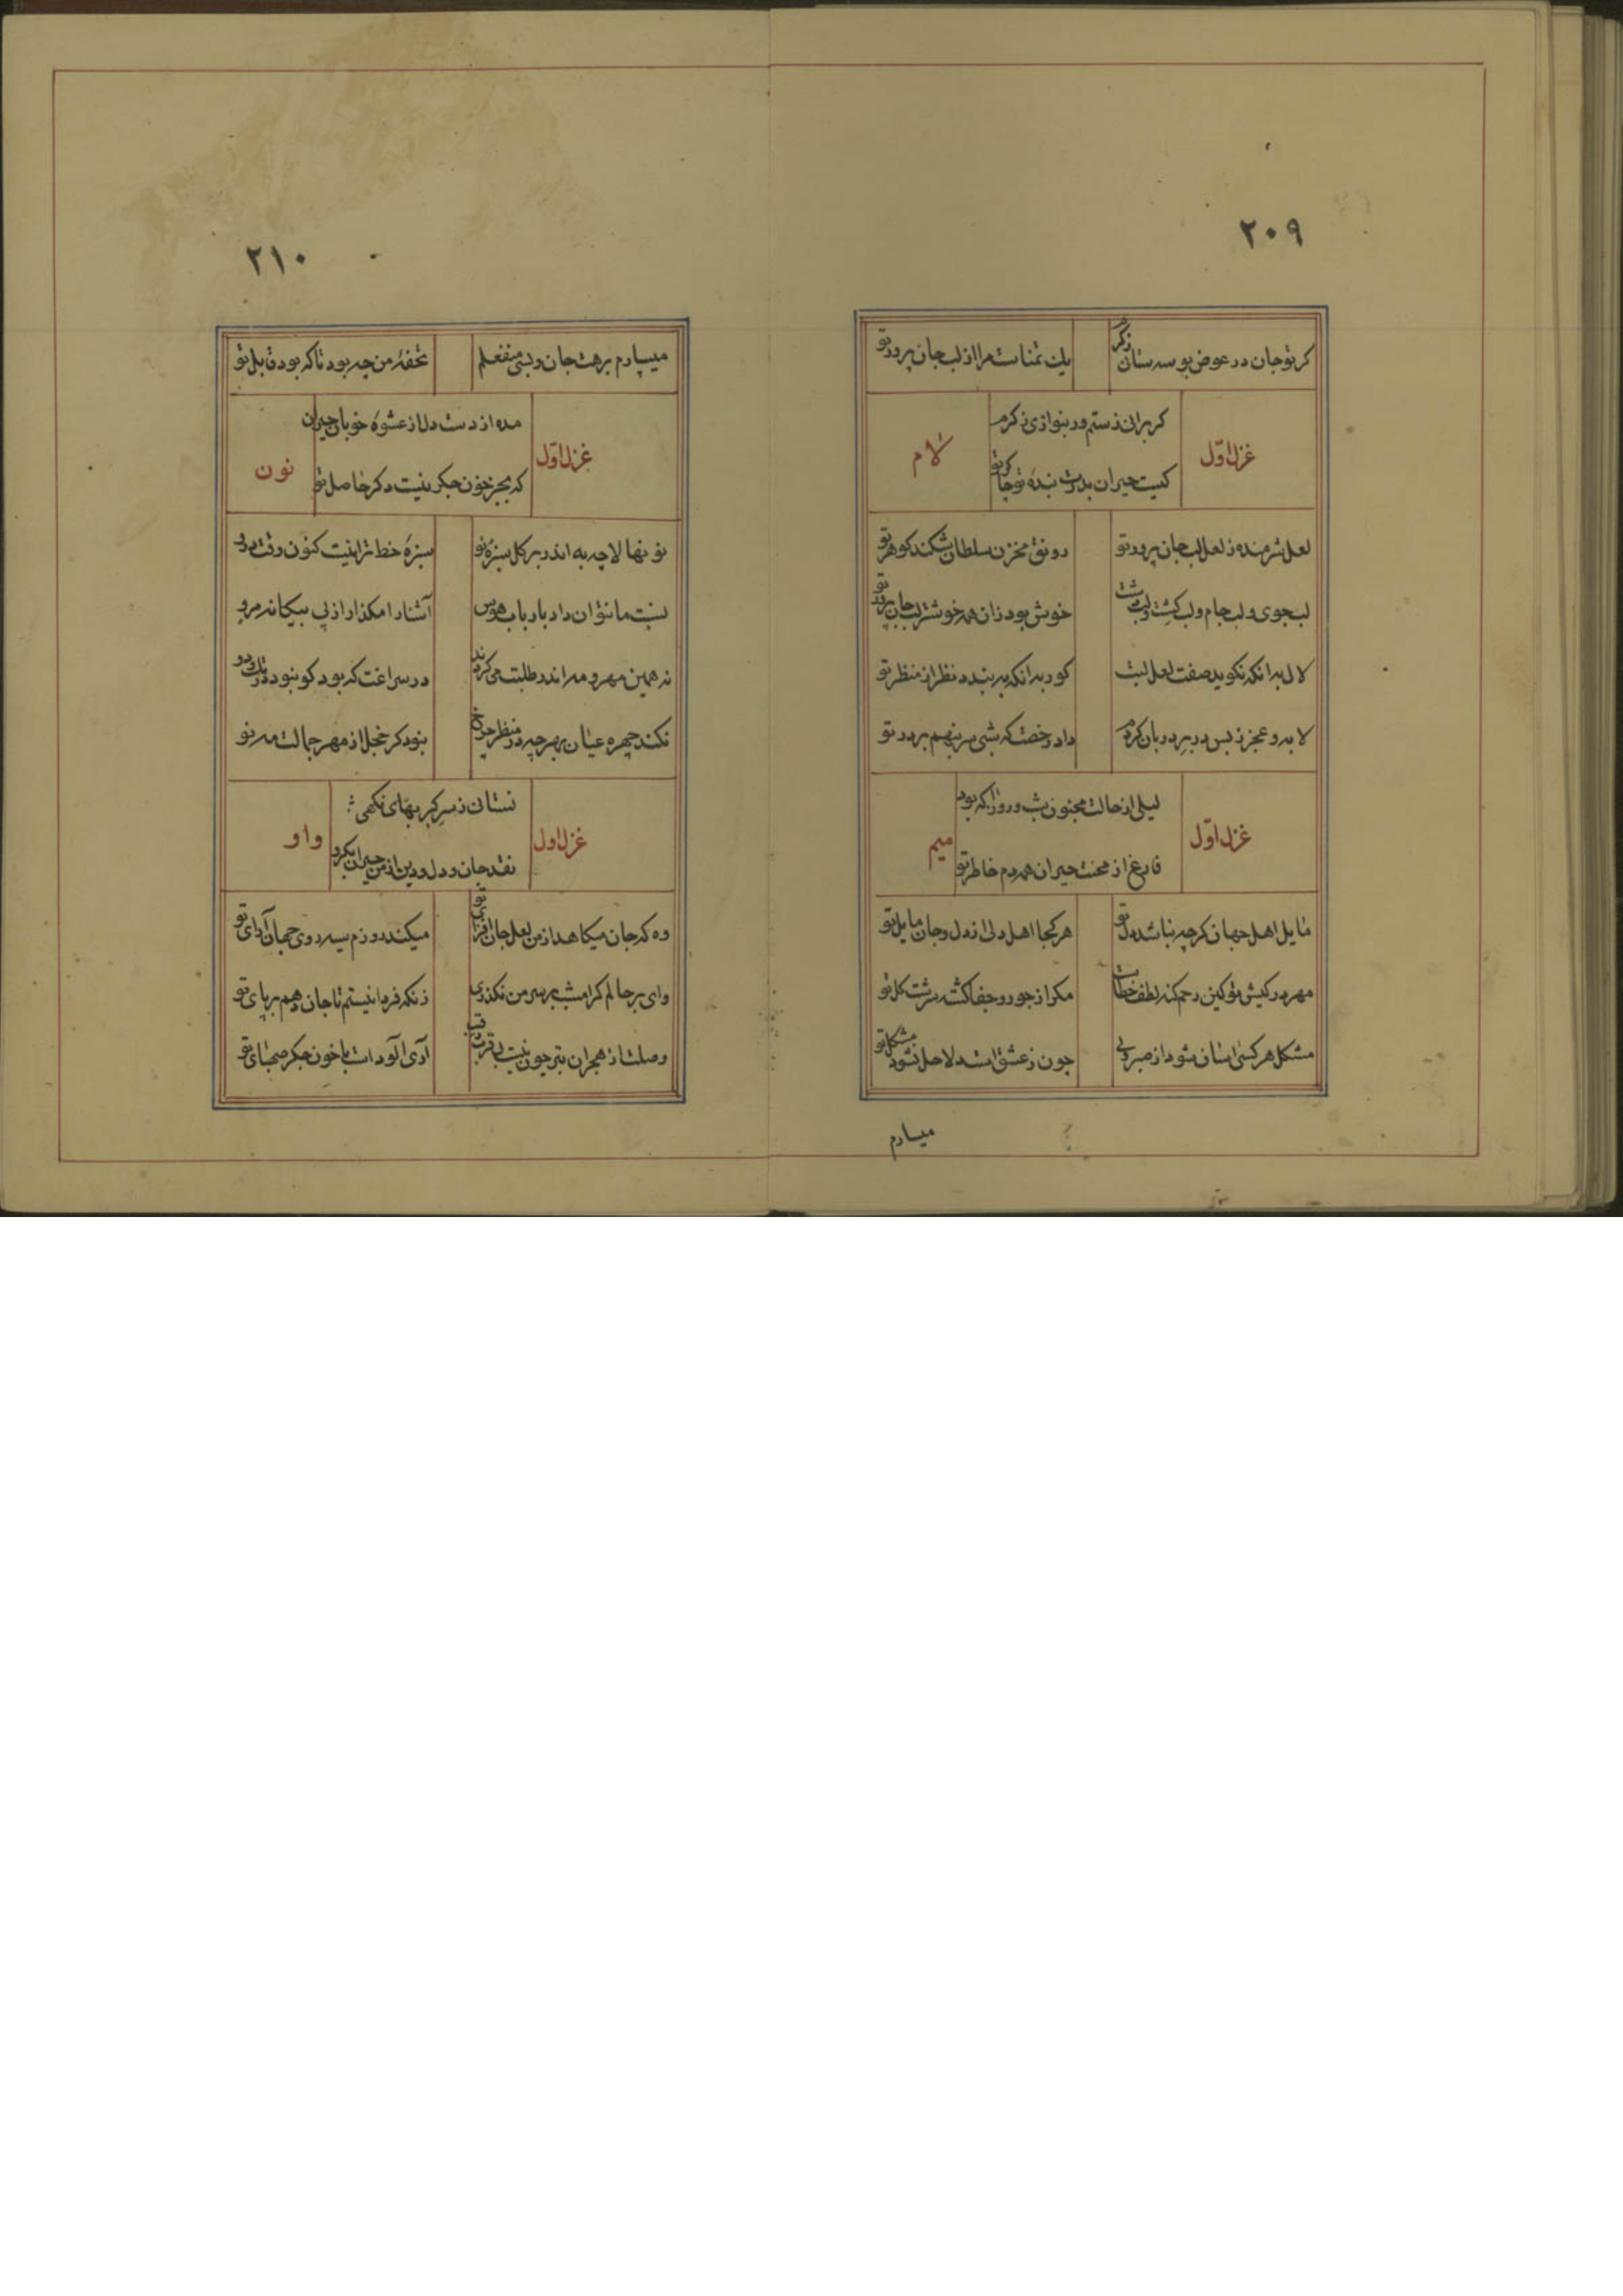 ۲۰۹
کر تو جان در عوض بوسه ستانی ز کرم
یک تمنا ست مرا از لب جان پرور تو
غزل اول
کر برانی ز ستم ور بنوازی ز کرم
کیست حیران بدرت بنده تو چاکر تو
لام
لعل شرمنده ز لعل لب جان پرور تو
رونق مخزن سلطان شکند کوهر تو
لب جوی و لب جام و لب کشت و لب
خوش بود زان همه خوشتر لب جان پرور تو
لال به انکه نکوید صفت لعل لبت
کور به انکه به بندد نظر از منظر تو
لابه و عجز ز بس در بر دربان کردم
داد رخصت که شبی سر بنهم بر در تو
غزل اول
لیلی از حالت مجنون شب و روز ار که بود
فارغ از محنت حیران همه دم خاطر تو
میم
مایل اهل جهان کرچه نباشد دل تو
هر کجا اهل دلی از دل و جان مایل تو
مهر در کیش تو کین رحم کنه لطف خطاست
مکر از جور و جفا کشته سرشت کل تو
مشکل هر کسی اسان شود از صبر ولی
چون ز عشق است دلا حل نشود مشکل تو
میسپارم
۲۱۰
میسپارم برهت جان و بسی منفعلم
تحفه من چه بود تا که بود قابل تو
غزل اول
مده از دست دل از عشوه خوبان حیران
که بجز خون جکر نیست دکر حاصل تو
نون
نو نهالا چه به اندر بر کل سبزه نو
سبزه خط ترا نیست کنون وقت درو
نسبت ما نتوان داد بارباب هوس
آشنا را مکذار از پی بیکانه مرو
نه همین مهر و مه اندر طلبت می کردند
در سراغت که بود کو نبود در تک و دو
نکند چهره عیان بهر چه در منظر چرخ
نبود کر خجل از مهر جمالت مه نو
غزل اول
نستانی ز سر کبر بهای نکهی
نقد جان و دل و دین از من حیران بکرو
واو
وه که جان میکاهد از من لعل جان افزای تو
میکند روزم سیه روی جهان آرای تو
وای بر حالم کر امشب بر سر من نکذری
زنکه فردا نیستم تا جان دهم بر پای تو
وصلت از هجران بتر چون نیست بی قرب رقیب
آری آلوده است با خون جکر صهبای تو